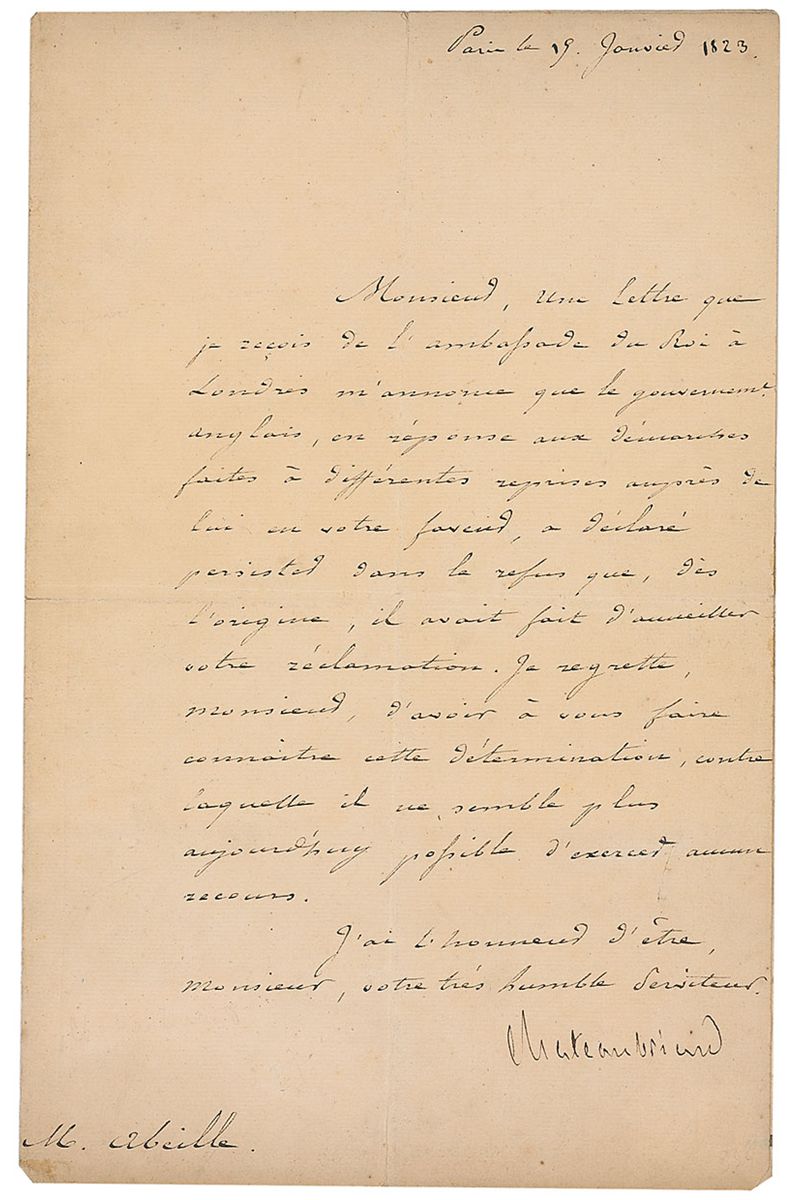 Paris le 19. Janvier 1823.
Monsieur, une lettre que
je reçois de l'ambassade du Roi à
Londres m'annonce que le gouvernemt.
anglais, en réponse aux démarches
faites à différentes reprises auprès de
lui en votre faveur, a déclaré
persister dans le refus que, dès
l'origine, il avait fait d'accueillir
votre réclamation. Je regrette,
monsieur, d'avoir à vous faire
connaitre cette détermination, contre
laquelle il ne semble plus
aujourd'huy possible d'exercer aucun
recours.
J'ai l'honneur d'être,
monsieur, votre trés humble Serviteur.
Chateaubriand
M. Abeille.